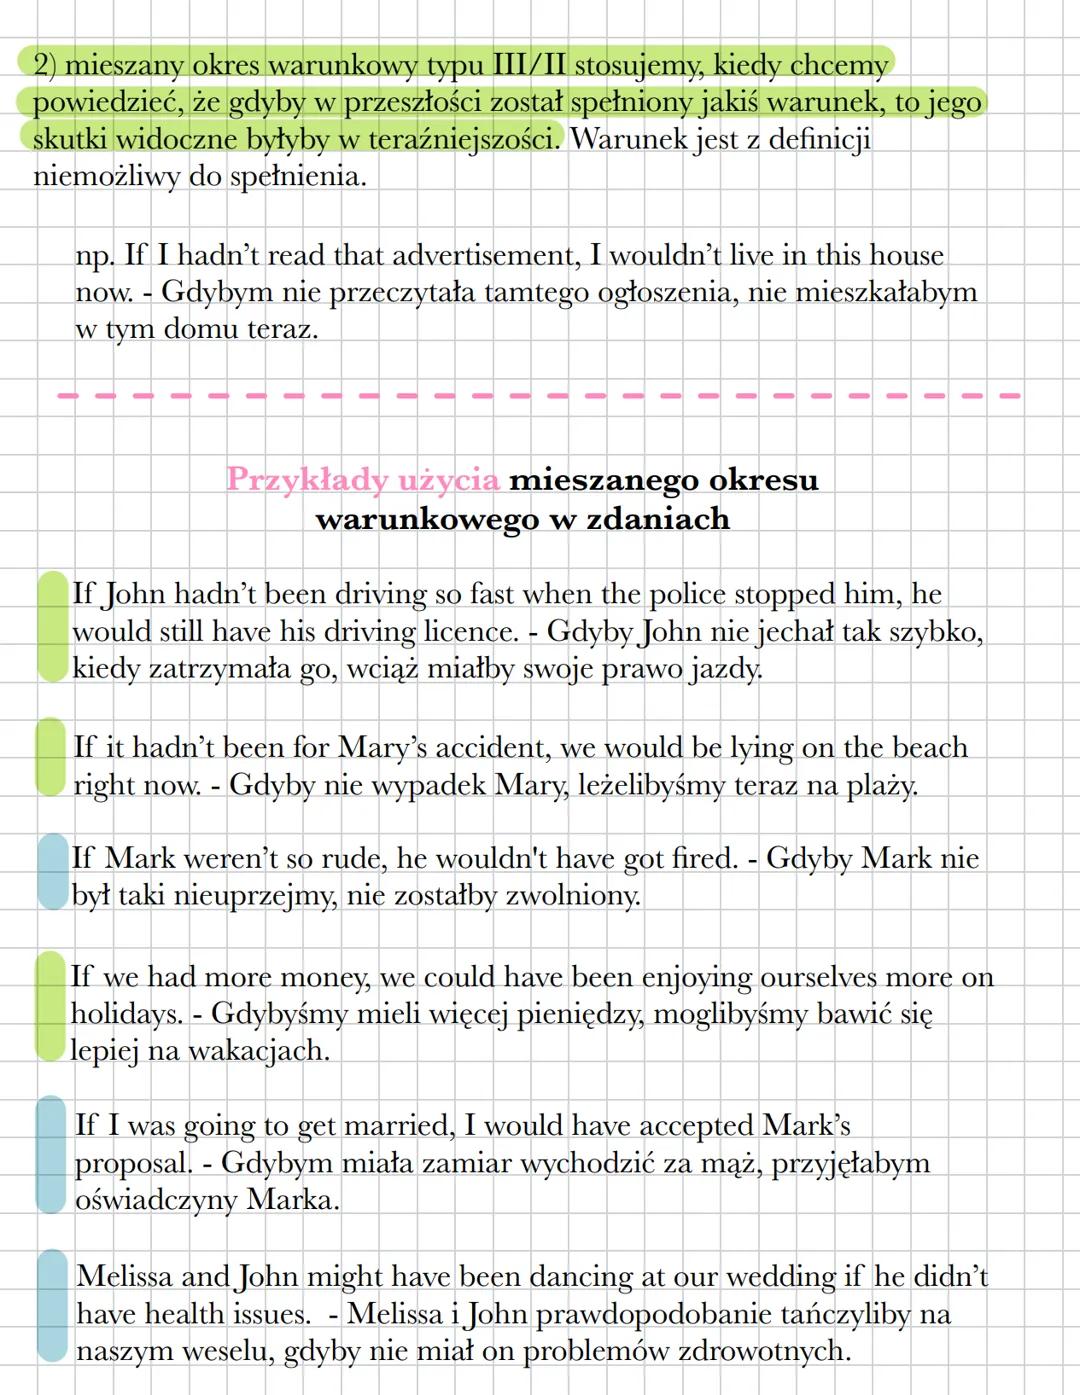 2) mieszany okres warunkowy typu III/II stosujemy, kiedy chcemy
powiedzieć, że gdyby w przeszłości został spełniony jakiś warunek, to jego
skutki widoczne byłyby w teraźniejszości. Warunek jest z definicji
niemożliwy do spełnienia.
np. If I hadn’t read that advertisement, I wouldn’t live in this house
now. - Gdybym nie przeczytała tamtego ogłoszenia, nie mieszkałabym
w tym domu teraz.
Przykłady użycia mieszanego okresu
warunkowego w zdaniach
If John hadn’t been driving so fast when the police stopped him, he
would still have his driving licence. - Gdyby John nie jechał tak szybko,
kiedy zatrzymała go, wciąż miałby swoje prawo jazdy.
If it hadn’t been for Mary’s accident, we would be lying on the beach
right now. - Gdyby nie wypadek Mary, leżelibyśmy teraz na plaży.
If Mark weren’t so rude, he wouldn't have got fired. - Gdyby Mark nie
był taki nieuprzejmy, nie zostałby zwolniony.
If we had more money, we could have been enjoying ourselves more on
holidays. - Gdybyśmy mieli więcej pieniędzy, moglibyśmy bawić się
lepiej na wakacjach.
If I was going to get married, I would have accepted Mark’s
proposal. - Gdybym miała zamiar wychodzić za mąż, przyjęłabym
oświadczyny Marka.
Melissa and John might have been dancing at our wedding if he didn’t
have health issues. - Melissa i John prawdopodobanie tańczyliby na
naszym weselu, gdyby nie miał on problemów zdrowotnych.